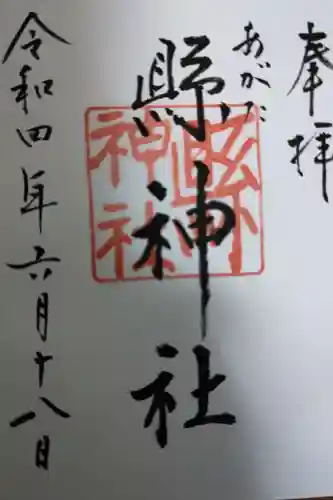 奉拝
あがた
縣神社
縣
神社
令和四年六月十八日